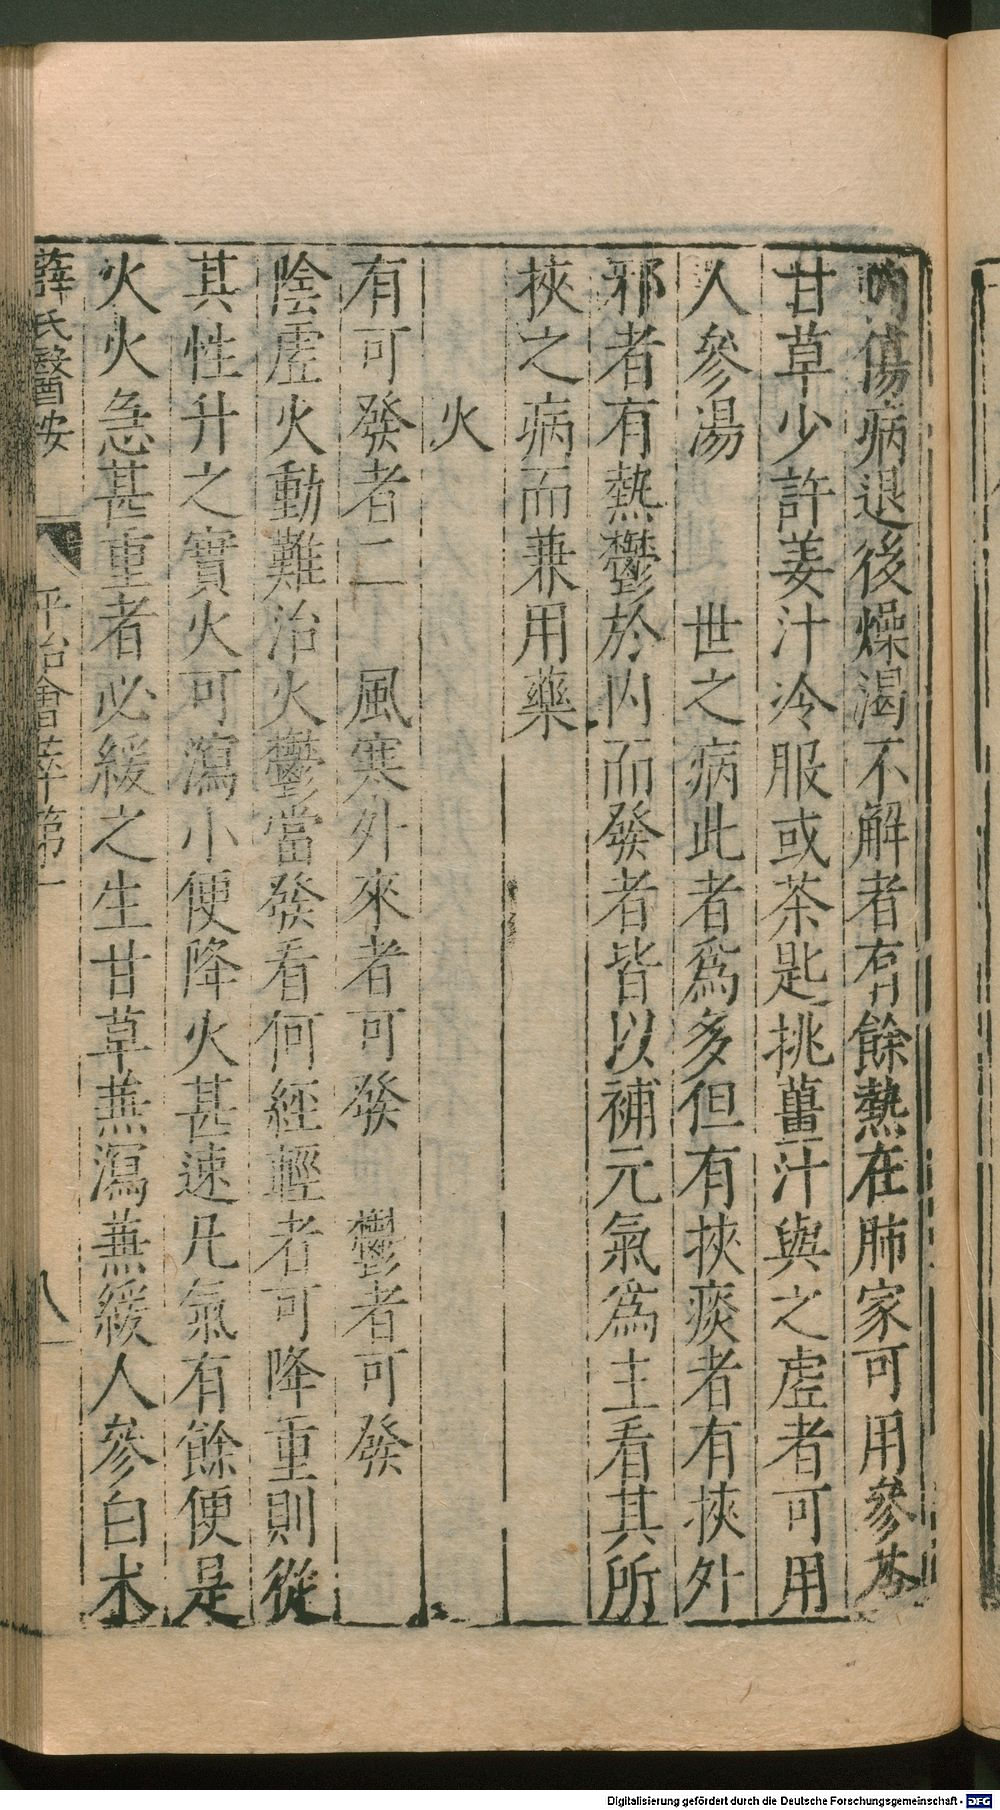 內傷病退後燥渴不解者有餘熱在肺家可用參苓
甘草少許姜汁冷服或茶匙挑薑汁與之虛者可用
人參湯　世之病此者爲多但有挾痰者有挾外
邪者有熱鬱於內而發者皆以補元氣爲主看其所
挾之病而兼用藥
火
有可發者二　風寒外來者可發　鬱者可發
陰虛火動難治火鬱當發看何經輕者可降重則從
其性升之實火可瀉小便降火甚速凡氣有餘便是
火火急甚重者必緩之生甘草兼瀉兼緩人參白朮
薛氏醫按　平治會萃第一　八
Digitalisierung gefördert durch die Deutsche Forschungsgemeinschaft - DFG